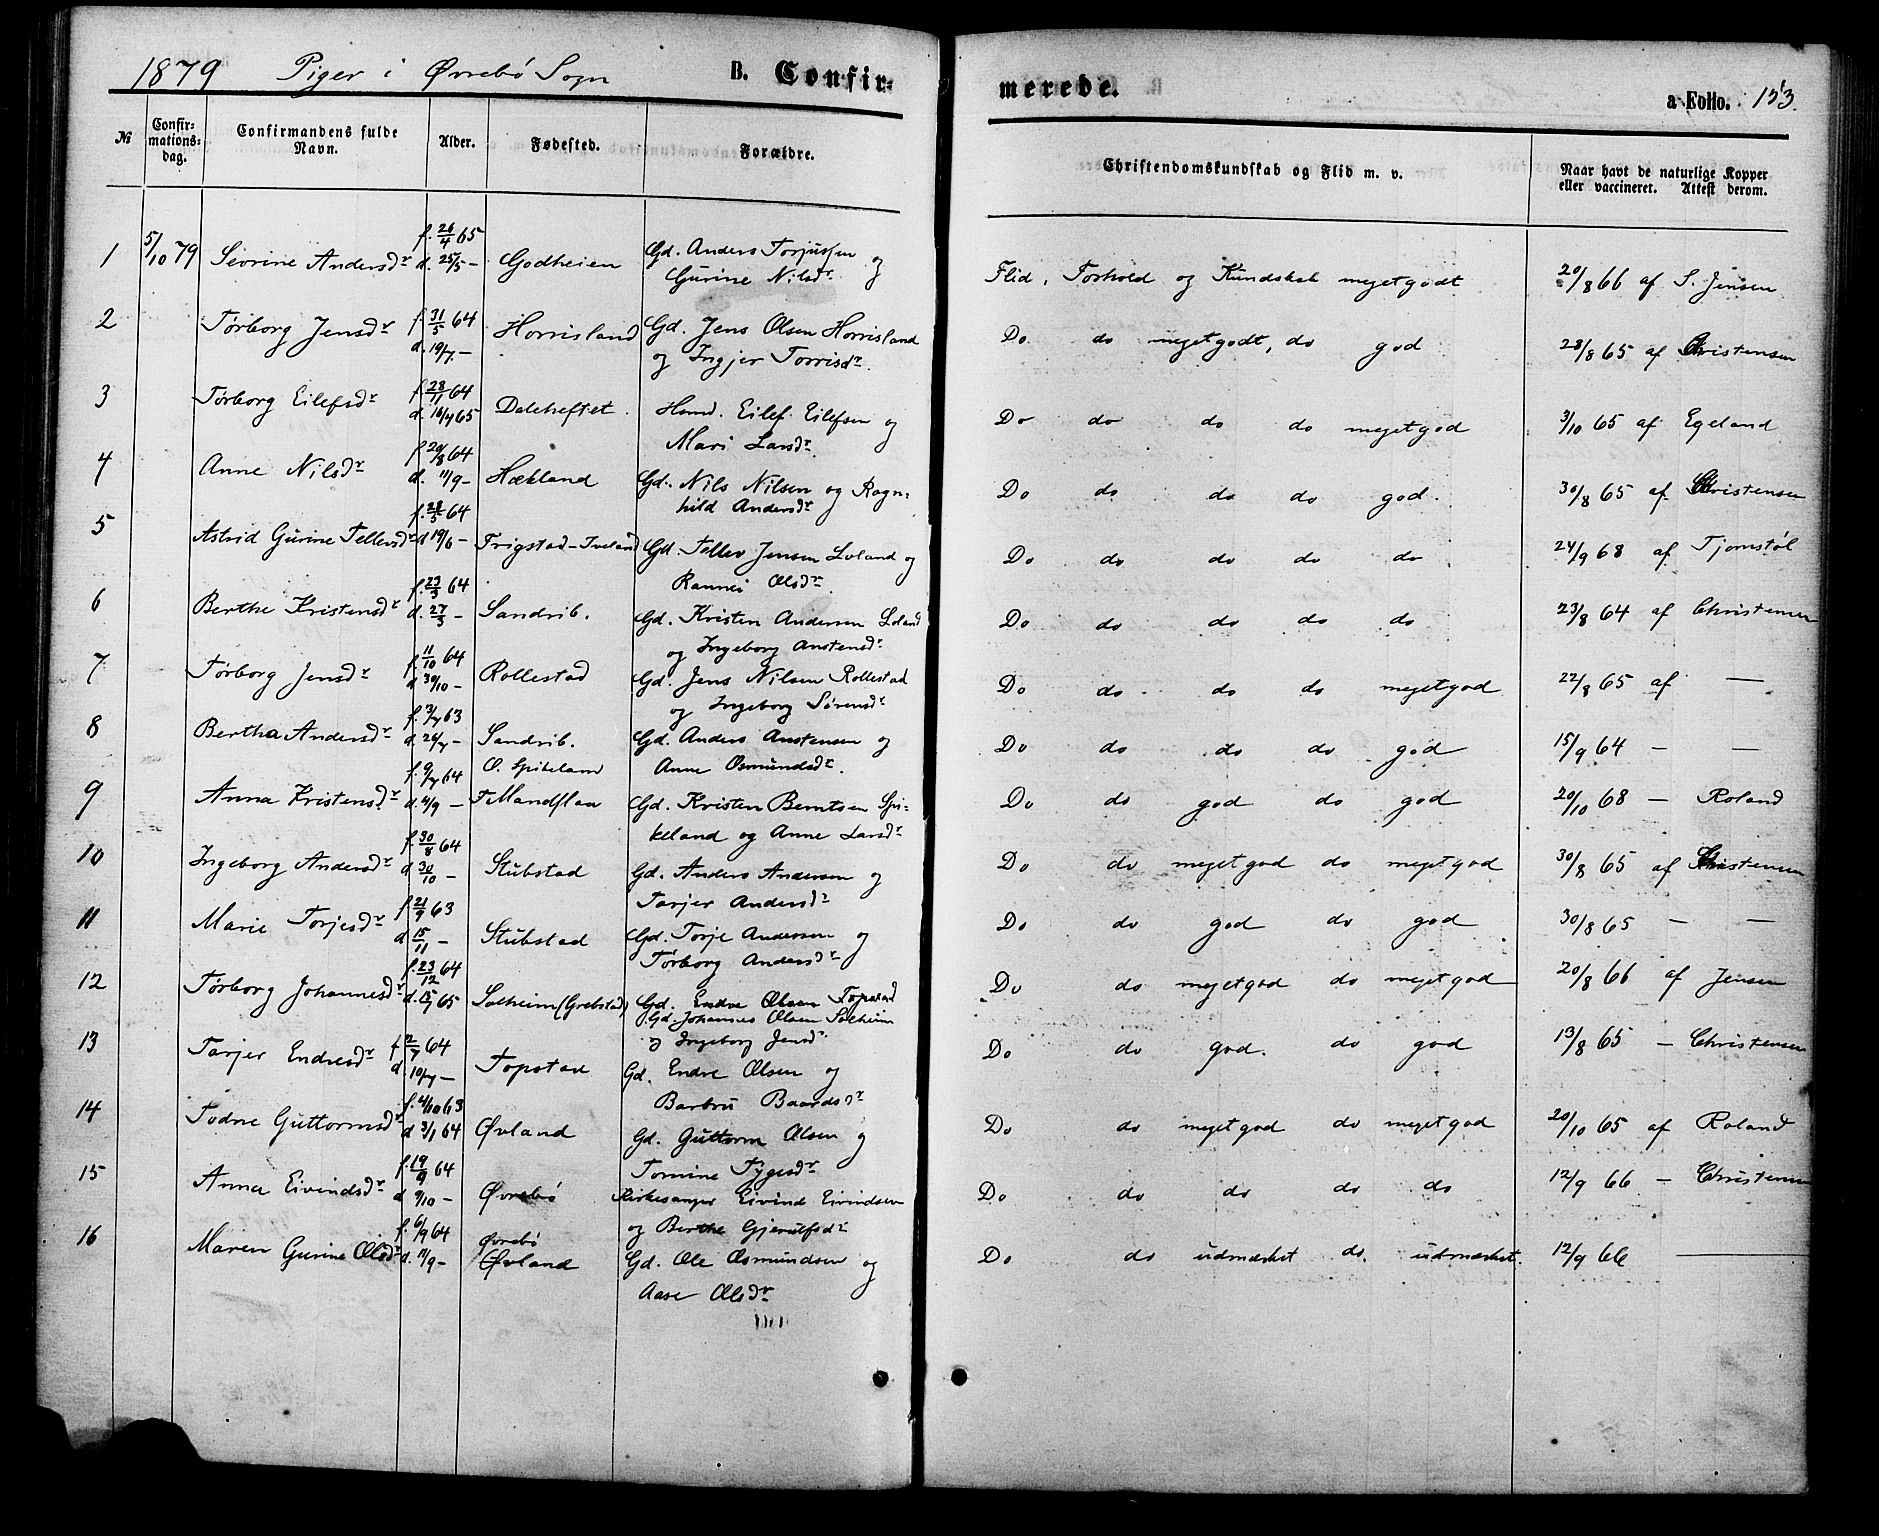 1879 Piger i Øvrebö Sogn B. Confir=
merede. a Folio. 153.
№ Confir=mations=dag. Confirmandens fulde Navn. Alder. Fødested. Forældre. Christendomskundskab og Flid m. v. Naar havt de naturlige Kopper eller vaccineret. Attest derom.
1 5/10 79 Sevrine Andersdr f. 26/4 65 d. 25/5 – Godheien Gd. Anders Torjussen og Gurine Nilsdr. Flid, Forhold og Kundskab megetgodt 20/8 66 af S. Jensen
2 Tørborg Jensdr f. 31/5 64 d. 19/7 – Horrisland Gd. Jens Olsen Horrisland og Ingjer Torrisdr. Do do megetgodt, do god 28/8 65 af Christensen
3 Tørborg Eilefsdr f. 28/11 64 d. 16/4 65 Daleheftet Hmd. Eilef Eilefsen og Mari Larsdr. Do do do do megetgod 3/10 65 af Egeland
4 Anne Nilsdr f. 20/8 64 d. 11/9 – Hækland Gd. Nils Nilsen og Ragn=hild Andersdr Do do do do god. 30/8 65 af Christensen
5 Astrid Gurine Tellevsdr f. 28/5 64 d 19/6 – Frigstad – Iveland Gd. Tellev Jensen Loland og Rannei Olsdr. Do do do do do 24/9 68 af Tjomstøl
6 Berthe Kristensdr f. 23/3 64 d. 27/3 – Sandrib. Gd. Kristen Andersen Loland og Ingeborg Anstensdr Do do do do do 23/8 64 af Christensen
7 Tørborg Jensdr f. 11/10 64 d 30/10 – Rollestad Gd. Jens Nilsen Rollestad og Ingeborg Sørensdr Do do do do megetgod 22/8 65 af —
8 Bertha Andersdr f. 3/7 63 d. 26/7 – Sandrib. Gd. Anders Anstensen og Anne Osmundsdr. Do do do do god 15/9 64 – —
9 Anna Kristensdr f. 9/7 64 d. 4/9 – O. Spikeland F Mandflaa Gd. Kristen Berntsen Spi-keland og Anne Larsdr Do do god do god 20/10 68 – Roland
10 Ingeborg Andersdr f. 30/8 64 d 30/10 – Stubstad Gd. Anders Andersen og Tarjer Andersdr Do do megetgod do megetgod 30/8 65 af Christensen
11 Marie Torjesdr f 21/9 63 d 15/11 – Stubstad Gd. Torje Andersen og Tørborg Andersdr Do do god do god 30/8 65 – —
12 Tørborg Johannesdr f. 23/12 64 d. 65 Solheim (Grebstad) Gd. Endre Olsen Topstad Gd. Johannes Olsen Solheim og Ingeborg Jensdr Do do megetgod do megetgod 20/8 66 af Jensen
13 Tarjer Endresdr f 2/7 64 d 10/7 – Topstad Gd. Endre Olsen og Barbru Baardsdr Do do god. do god 13/8 65 – Christensen
14 Todne Guttormsdr f. 4/10 63 d 3/1 64 Øvland Gd. Guttorm Olsen og Tomine Tygesdr Do do megetgod do megetgod 20/10 65 af Roland
15 Anna Eivindsdr f. 19/9 64 d 9/10 – Øvrebö Kirkesanger Eivind Eivindsen og Berthe Gjerulfsdr Do do do do do 12/9 66 – Christensen
16 Maren Gurine Olsdr f. 6/9 64 d. 11/9 – Øvrebö Øvland Gd. Ole Osmundsen og Aase Olsdr Do do udmærket do. udmærket. 12/9 66 —